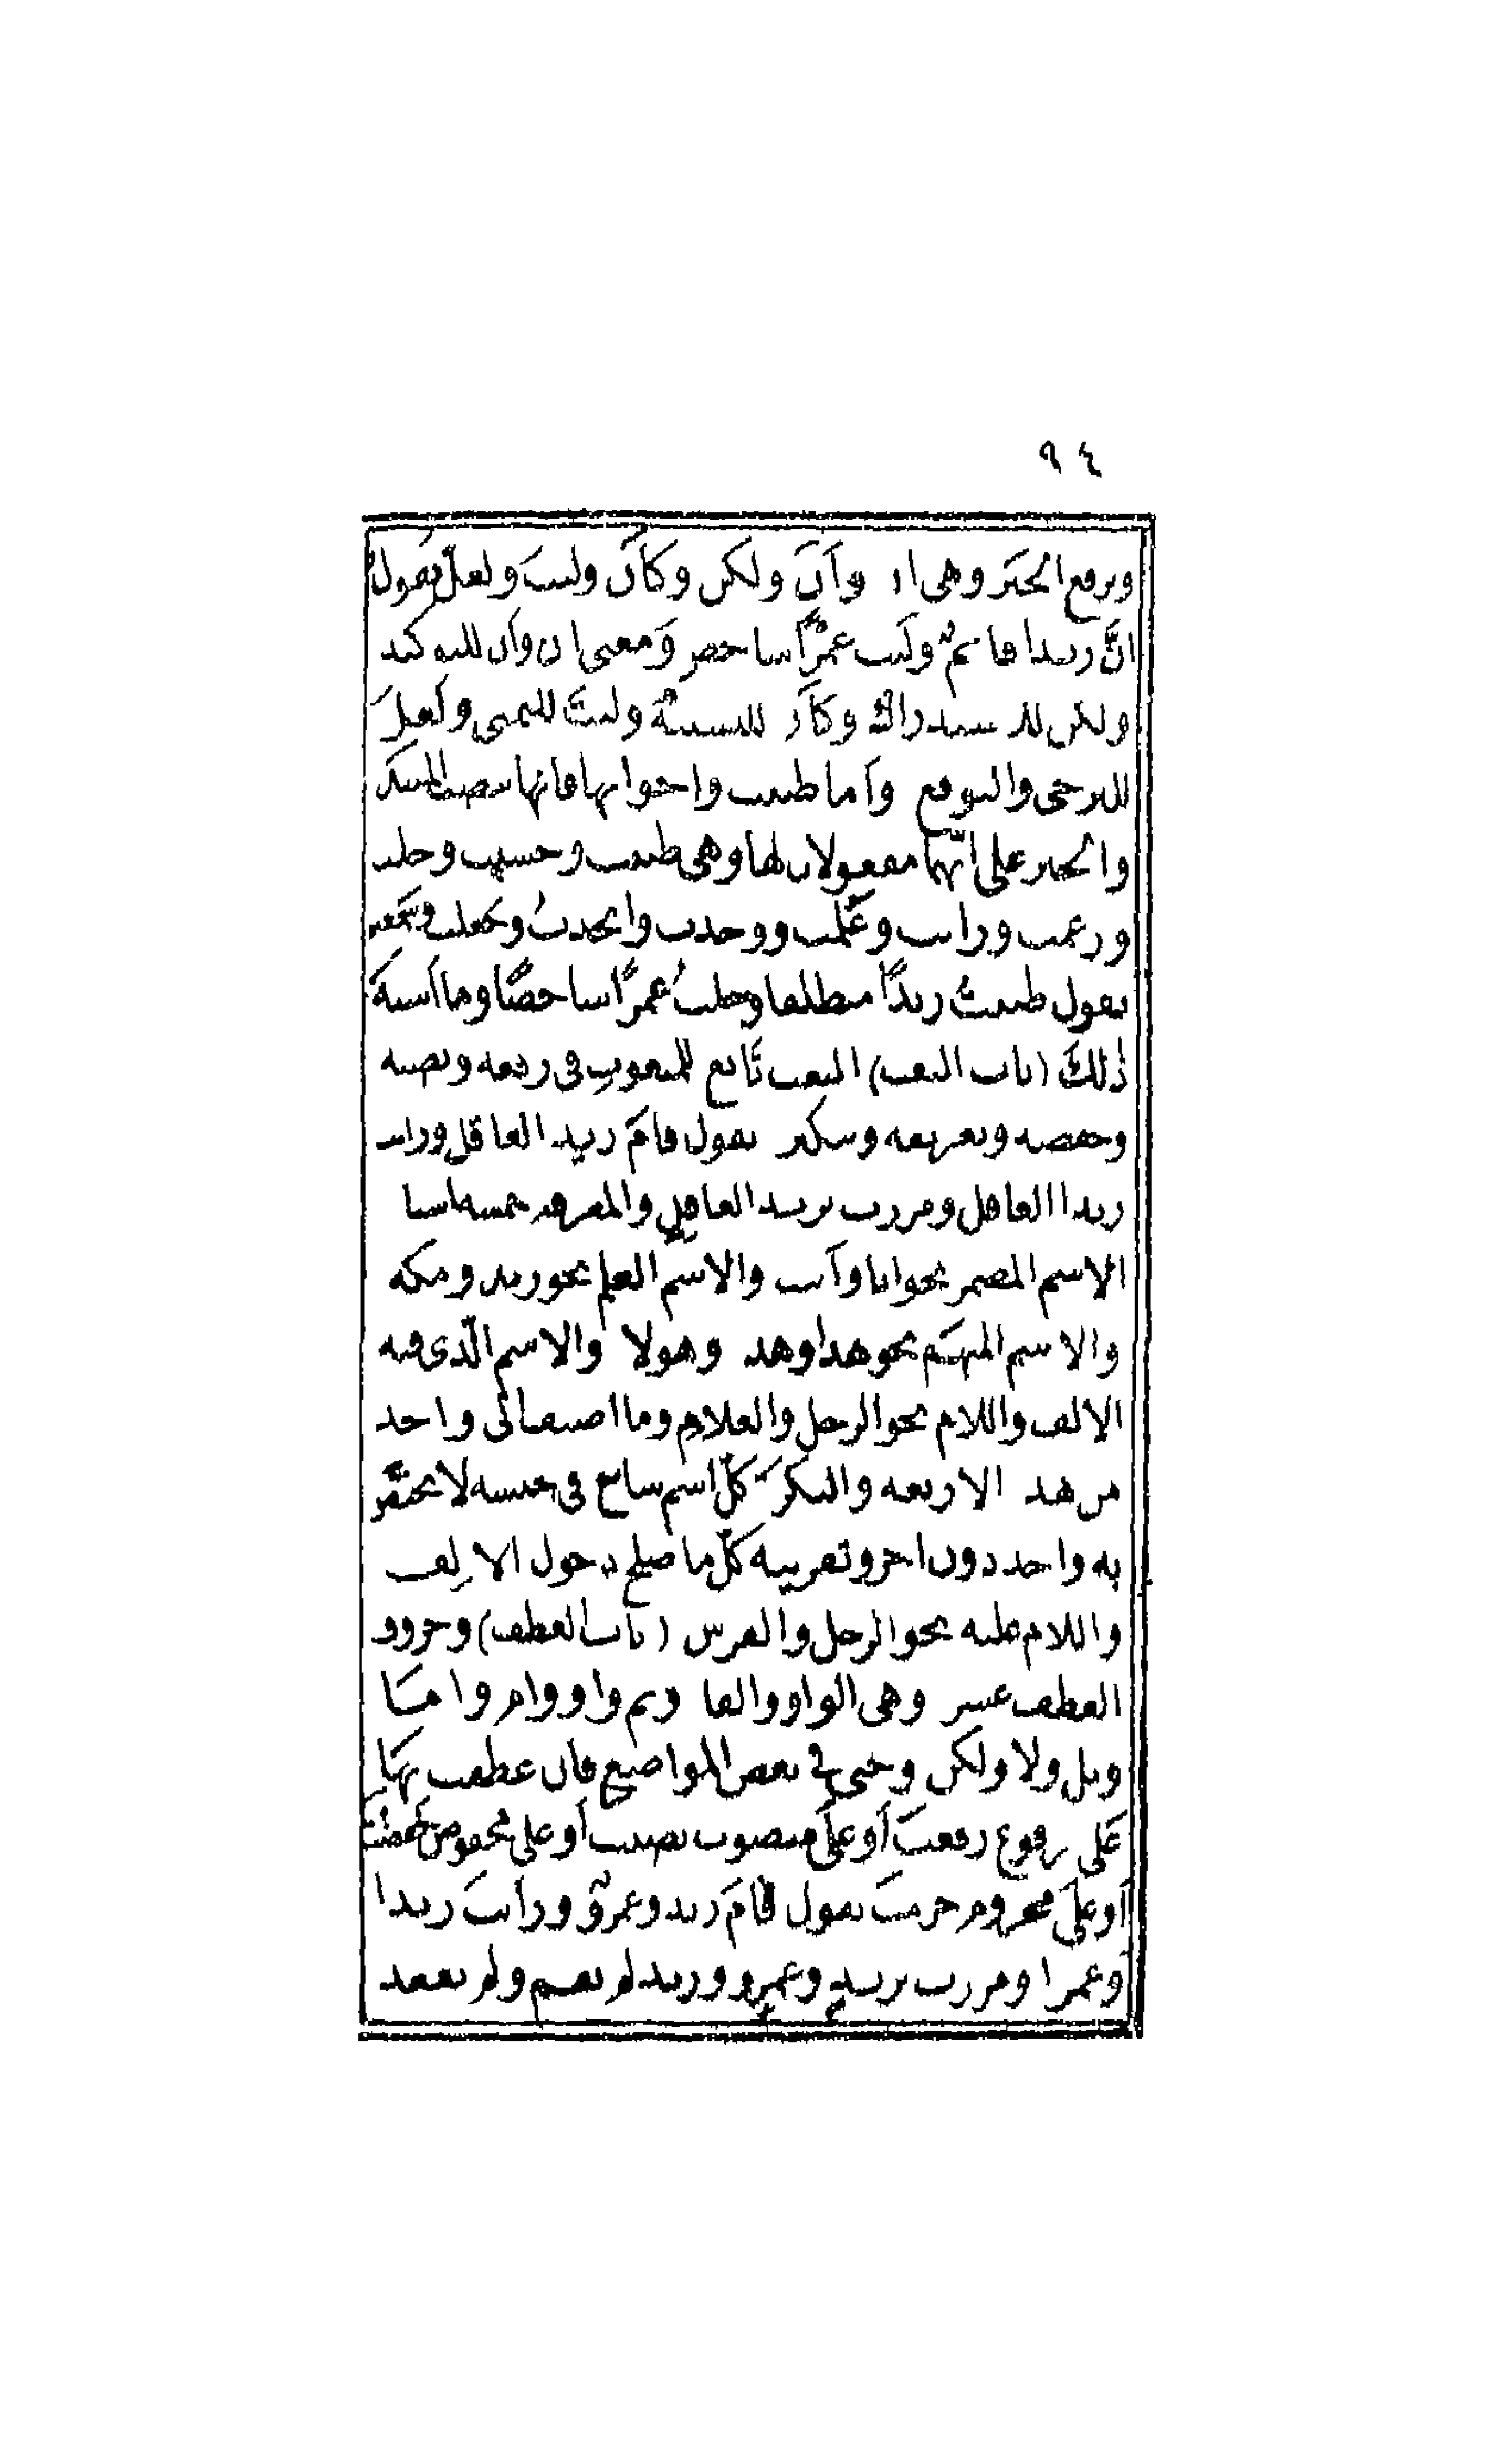 ٩٤
وترفع الخبر وهي ان وأنّ ولكن وكأنّ وليت ولعلّ تقول
انّ زيدا قائمٌ وليت عمرًا شاخص ومعنى ان وأن للتوكيد
ولكن للاستدراك وكأن للتشبيه وليت للتمنى ولعلّ
للترجى والتوقع وأما ظننت واخواتها فانها تنصب المبتدأ
والخبر على انّهما مفعولان لها وهى ظننت وحسبت وخلت
وزعمت ورايت وعلمت ووجدت واتخذت وجعلت وسمعت
تقول ظننت زيدًا منطلقا وخلت عمرًا شاخصًا وما أشبه
ذلك (باب النعت) النعت تابع للمنعوت فى رفعه ونصبه
وخفضه وتعريفه وتنكيره تقول قام زيد العاقل ورايت
زيدا العاقل ومررت بزيد العاقل والمعرفة خمسة اشيا
الاسم المضمر نحو انا وأنت والاسم العلم نحو زيد ومكة
والاسم المبهم نحو هذا وهذه وهولا والاسم الّذى فيه
الالف واللام نحو الرجل والغلام وما اضيف الى واحد
من هذه الاربعة والنكرة كلّ اسم شايع فى جنسه لا يختصّ
به واحد دون اخر وتقريبه كلّ ما صلح دخول الالف
واللام عليه نحو الرجل والفرس (باب العطف) وحروف
العطف عشرة وهى الواو والفا وثم واو وام واما
وبل ولا ولكن وحتى فى بعض المواضع فان عطفت بها
على مرفوع رفعت أو على منصوب نصبت أو على مخفوض خفضت
أو على مجزوم جزمت تقول قام زيد وعمرو ورأيت زيدا
وعمرا ومررت بزيد وعمرو وزيد لم يقم ولم يقعد